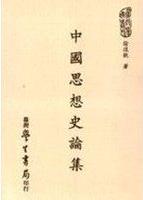 著
中國思想史論集
臺灣學生書局印行